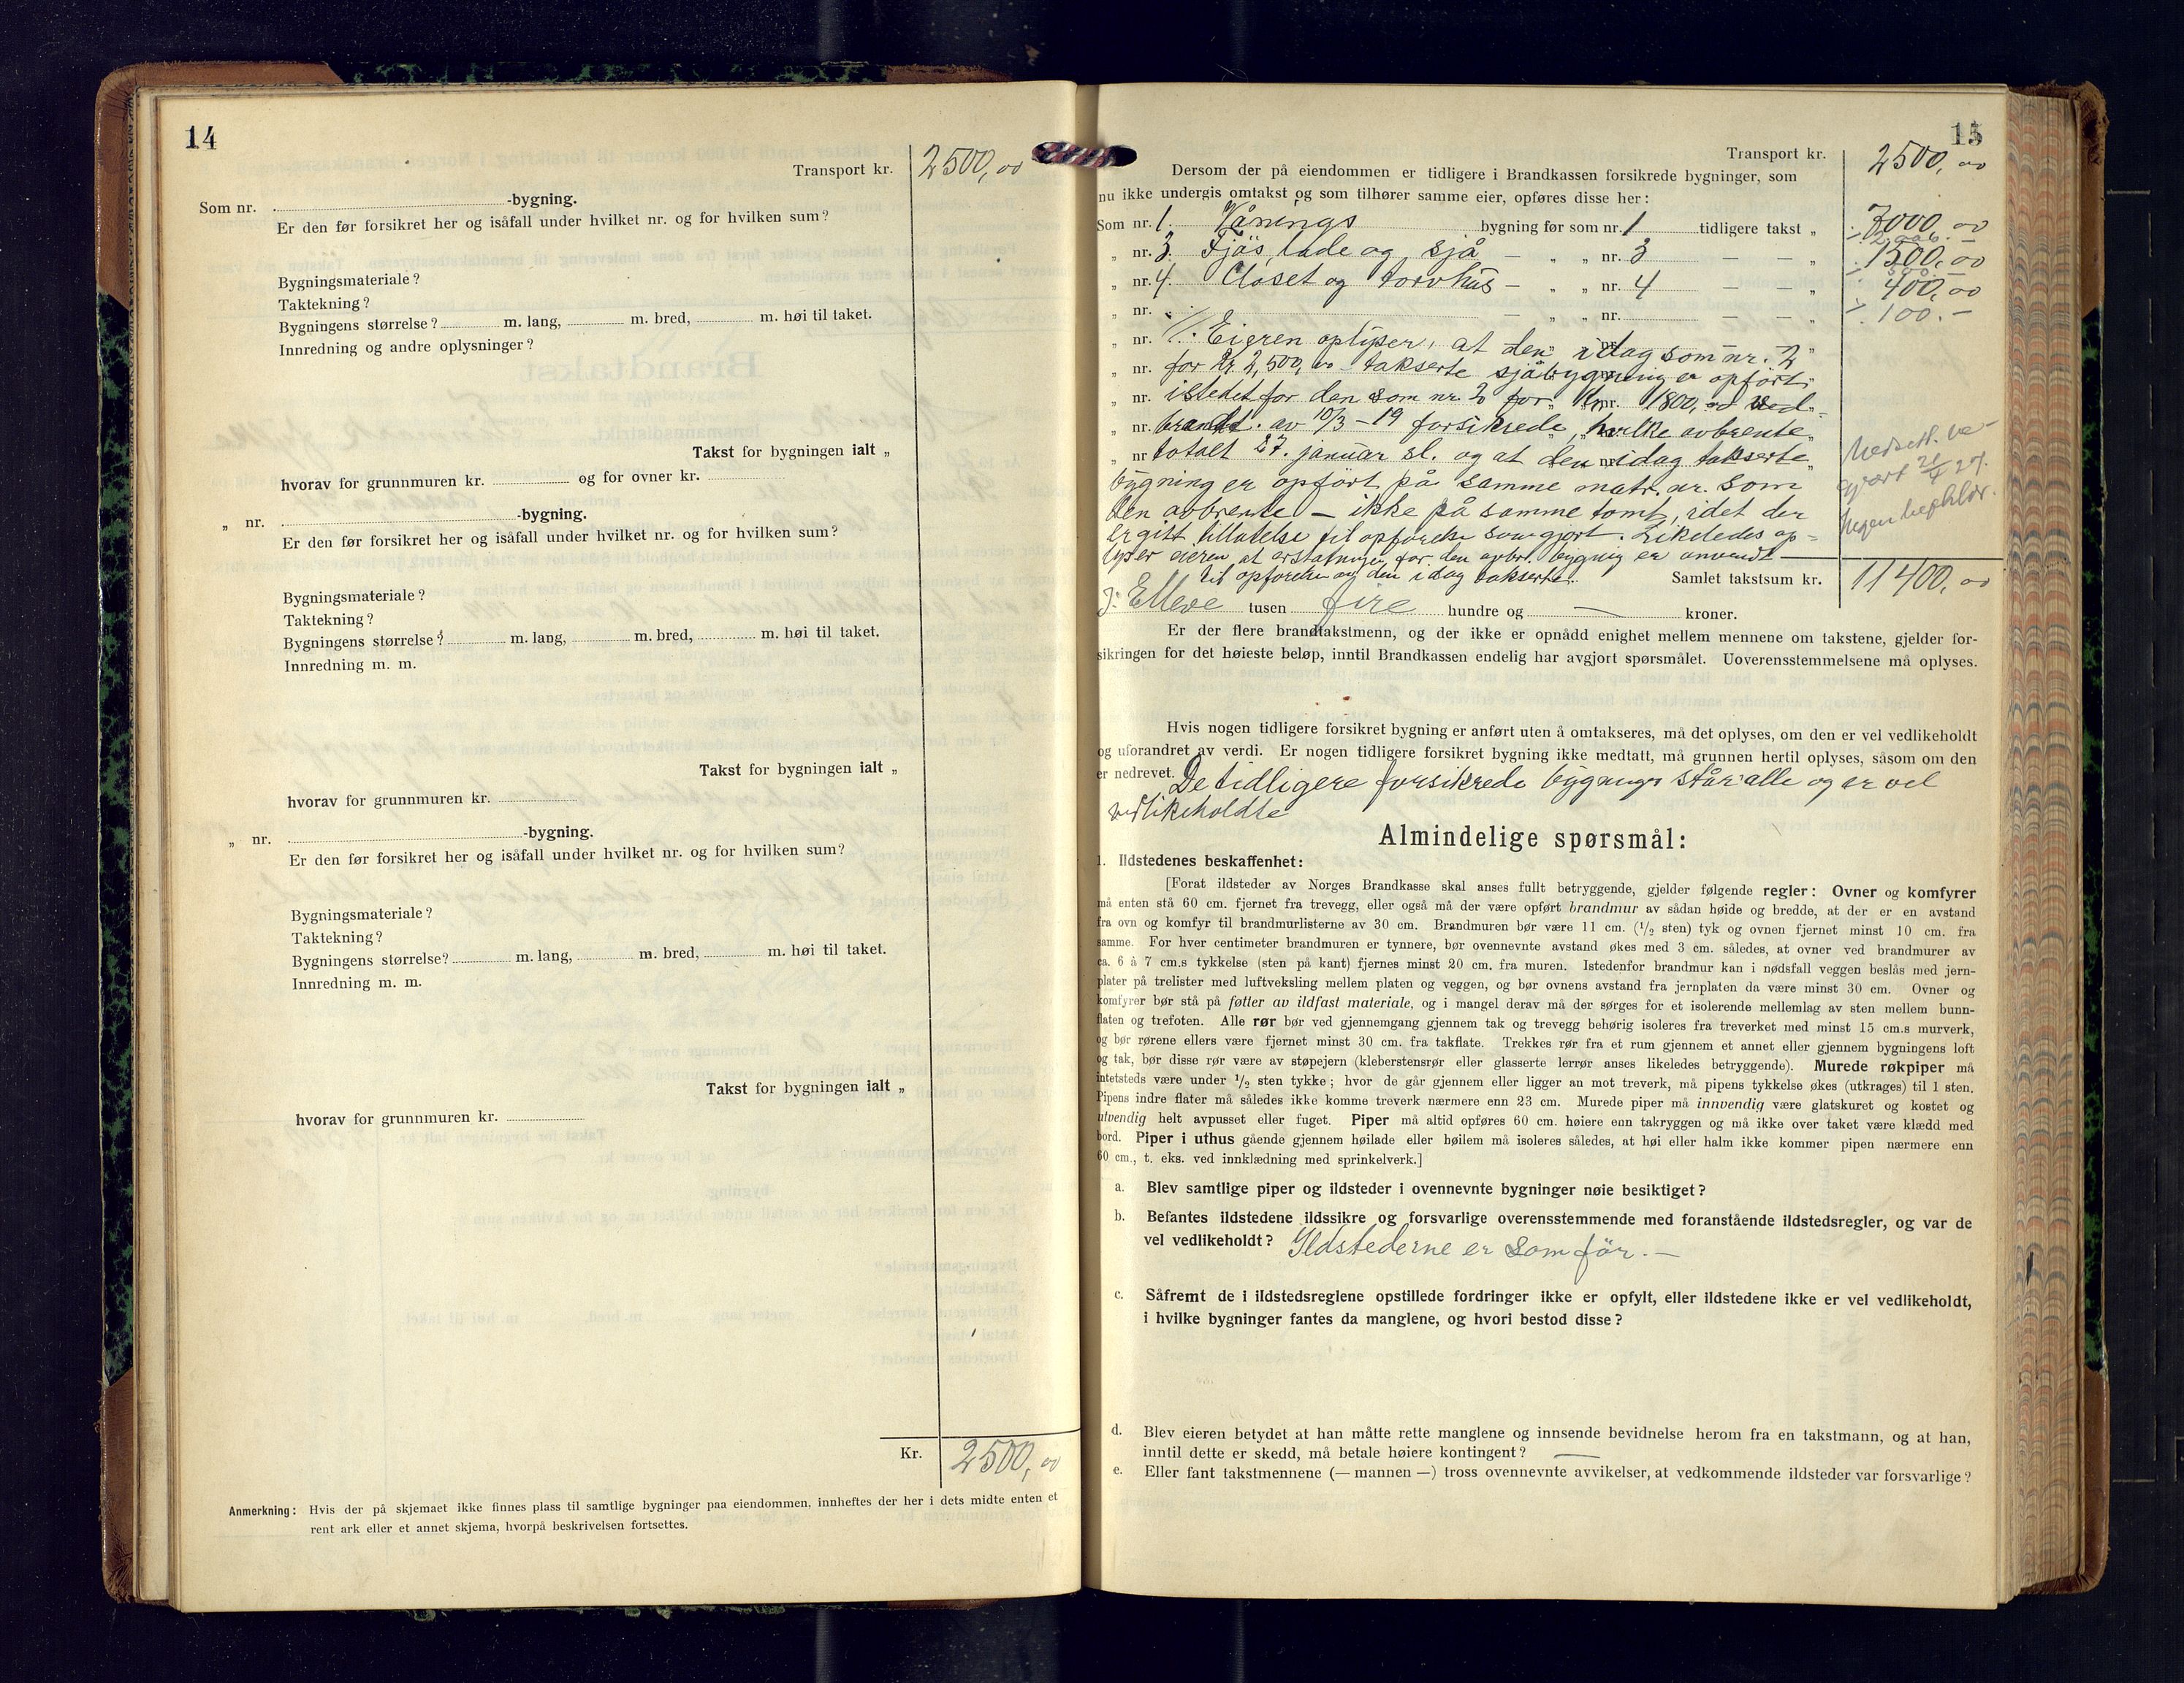 14
Transport kr. 2500,00
Som nr. -bygning.
Er den før forsikret her og isåfall under hvilket nr. og for hvilken sum?
Bygningsmateriale?
Taktekning?
Bygningens størrelse? m. lang, m. bred, m. høi til taket.
Innredning og andre oplysninger?
Takst for bygningen ialt „
hvorav for grunnmuren kr. og for ovner kr.
„ nr. -bygning.
Er den før forsikret her og isåfall under hvilket nr. og for hvilken sum?
Bygningsmateriale?
Taktekning?
Bygningens størrelse? m. lang, m. bred, m. høi til taket.
Innredning m. m.
Takst for bygningen ialt „
hvorav for grunnmuren kr.
„ nr. -bygning.
Er den før forsikret her og isåfall under hvilket nr. og for hvilken sum?
Bygningsmateriale?
Taktekning?
Bygningens størrelse? m. lang, m. bred, m. høi til taket.
Innredning m. m.
Takst for bygningen ialt „
hvorav for grunnmuren kr.
Kr. 2500,00
Anmerkning: Hvis der på skjemaet ikke finnes plass til samtlige bygninger paa eiendommen, innheftes der her i dets midte enten et
rent ark eller et annet skjema, hvorpå beskrivelsen fortsettes.
15
Transport kr. 2500,00
Dersom der på eiendommen er tidligere i Brandkassen forsikrede bygninger, som
nu ikke undergis omtakst og som tilhører samme eier, opføres disse her:
Som nr. 1. Vånings bygning før som nr. 1 tidligere takst „ 7000,00
„ nr. 3. Fjøs, lade og sjå — „ „ nr. 3 — — „ 1500,00
„ nr. 4. Closet og torvhus — „ „ nr. 4 — — „ 400,00
„ nr. — „ „ nr. — — „ 100.-
„ nr. Eieren oplyser, at den idag som nr. 2
„ nr. for kr. 2,500,00 takserte sjåbygning er opført
„ nr. istedet for den som nr 2 for Kr. 1800,00 ved
„ nr. brandt. av 10/3-19 forsikrede, hvilke avbrente
„ nr totalt 27. januar sl. og at den idag takserte
bygning er opført på samme matr. nr. som
den avbrente – ikke på samme tomt, idet der
er gitt tillatelse til opførelse som gjort. Likeledes op-
lyser eieren at erstatningen for den avbrt. bygnig er anvendt
til opførelse av den idag takserte. Samlet takstsum kr. 11400,00
Elleve tusen fire hundre og — kroner.
Er der flere brandtakstmenn, og der ikke er opnådd enighet mellem mennene om takstene, gjelder for-
sikringen for det høieste beløp, inntil Brandkassen endelig har avgjort spørsmålet. Uoverensstemmelsene må oplyses.
Hvis nogen tidligere forsikret bygning er anført uten å omtakseres, må det oplyses, om den er vel vedlikeholdt
og uforandret av verdi. Er nogen tidligere forsikret bygning ikke medtatt, må grunnen hertil oplyses, såsom om den
er nedrevet. De tidligere forsikrede bygninger står alle og er vel
vedlikeholdte
Almindelige spørsmål:
1. Ildstedenes beskaffenhet:
[Forat ildsteder av Norges Brandkasse skal anses fullt betryggende, gjelder følgende regler: Ovner og komfyrer
må enten stå 60 cm. fjernet fra trevegg, eller også må der være opført brandmur av sådan høide og bredde, at der er en avstand
fra ovn og komfyr til brandmurlisterne av 30 cm. Brandmuren bør være 11 cm. (1/2 sten) tyk og ovnen fjernet minst 10 cm. fra
samme. For hver centimeter brandmuren er tynnere, bør ovennevnte avstand økes med 3 cm. således, at ovner ved brandmurer av
ca. 6 à 7 cm.s tykkelse (sten på kant) fjernes minst 20 cm. fra muren. Istedenfor brandmur kan i nødsfall veggen beslås med jern-
plater på trelister med luftveksling mellem platen og veggen, og bør ovnens avstand fra jernplaten da være minst 30 cm. Ovner og
komfyrer bør stå på føtter av ildfast materiale, og i mangel derav må der sørges for et isolerende mellemlag av sten mellem bunn-
flaten og trefoten. Alle rør bør ved gjennemgang gjennem tak og trevegg behørig isoleres fra treverket med minst 15 cm.s murverk,
og bør rørene ellers være fjernet minst 30 cm. fra takflate. Trekkes rør fra et rum gjennem et annet eller gjennem bygningens loft
og tak, bør disse rør være av støpejern (kleberstensrør eller glasserte lerrør anses likeledes betryggende). Murede røkpiper må
intetsteds være under 1/2 sten tykke; hvor de går gjennem eller ligger an mot treverk, må pipens tykkelse økes (utkrages) til 1 sten.
Pipens indre flater må således ikke komme treverk nærmere enn 23 cm. Murede piper må innvendig være glatskuret og kostet og
utvendig helt avpusset eller fuget. Piper må altid opføres 60 cm. høiere enn takryggen og må ikke over taket være klædd med
bord. Piper i uthus gående gjennem høilade eller høilem må isoleres således, at høi eller halm ikke kommer pipen nærmere enn
60 cm., t. eks. ved innklædning med sprinkelverk.]
a. Blev samtlige piper og ildsteder i ovennevnte bygninger nøie besiktiget?
b. Befantes ildstedene ildssikre og forsvarlige overensstemmende med foranstående ildstedsregler, og var de
vel vedlikeholdt? Ildstederne er som før. —
c. Såfremt de i ildstedsreglene opstillede fordringer ikke er opfylt, eller ildstedene ikke er vel vedlikeholdt,
i hvilke bygninger fantes da manglene, og hvori bestod disse?
d. Blev eieren betydet at han måtte rette manglene og innsende bevidnelse herom fra en takstmann, og at han,
inntil dette er skedd, må betale høiere kontingent? —
e. Eller fant takstmennene (— mannen —) tross ovennevnte avvikelser, at vedkommende ildsteder var forsvarlige?